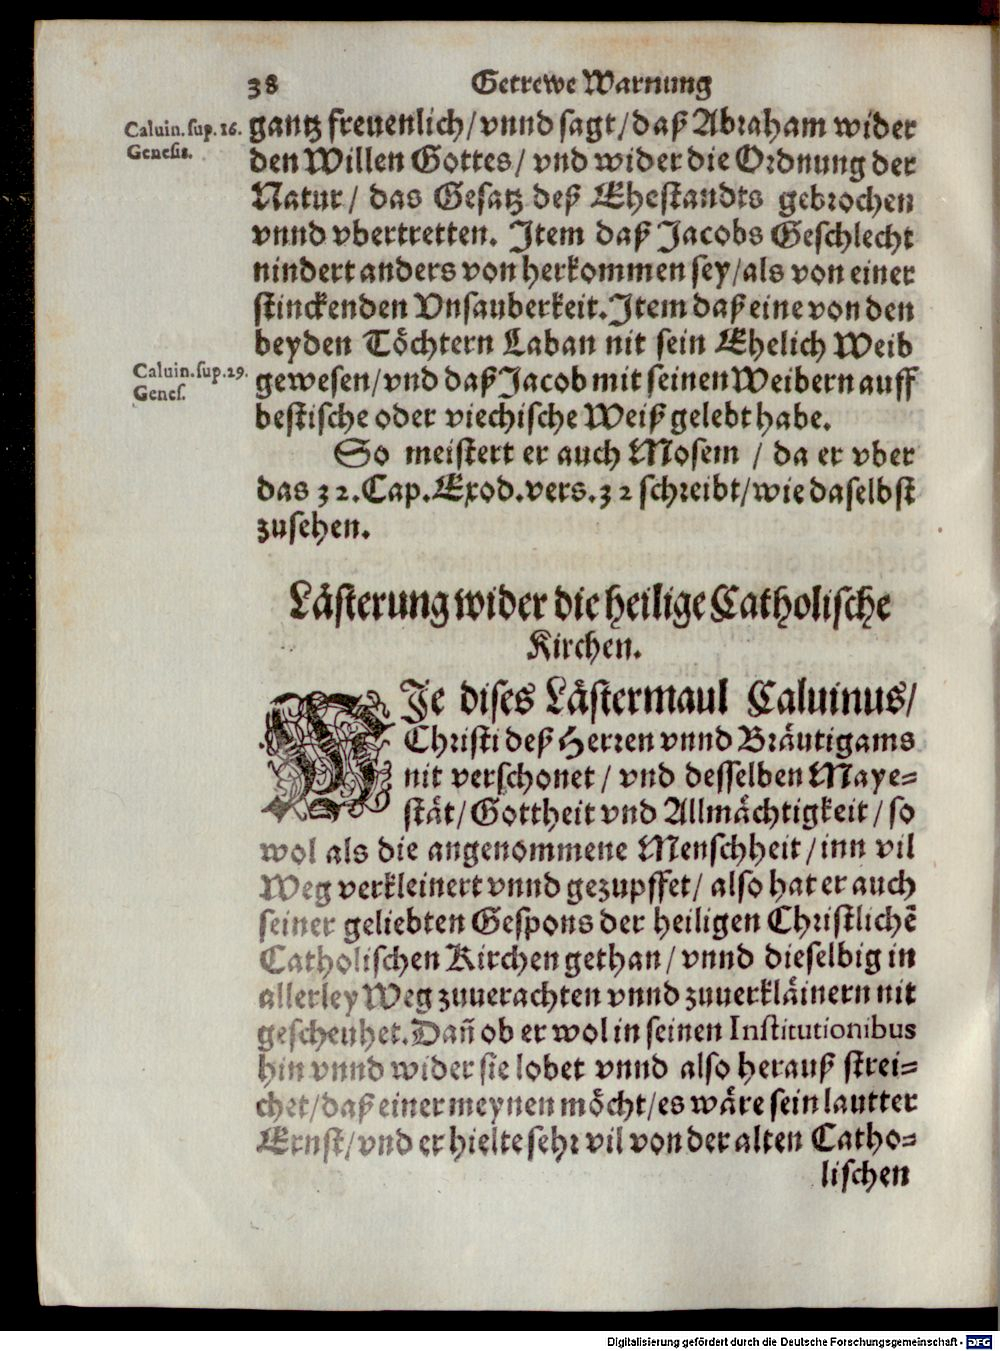 38 Getrewe Warnung
Caluin. sup. 16.
Genesis.
gantz freuenlich/vnnd sagt/daß Abraham wider
den Willen Gottes/ vnd wider die Ordnung der
Natur/ das Gesatz deß Ehestandts gebrochen
vnnd vbertretten. Item daß Jacobs Geschlecht
nindert anders von herkommen sey/als von einer
stinckenden Vnsauberkeit. Item daß eine von den
beyden Töchtern Laban nit sein Ehelich Weib
Caluin. sup. 29.
Genes.
gewesen/vnd daß Jacob mit seinen Weibern auff
bestische oder viechische Weiß gelebt habe.
So meistert er auch Mosem / da er vber
das 32. Cap. Exod. vers. 32 schreibt/wie daselbst
zusehen.
Lästerung wider die heilige Catholische
Kirchen.
WJe dises Lästermaul Caluinus/
Christi deß Herren vnnd Bräutigams
nit verschonet/ vnd desselben Maye=
stät/Gottheit vnd Allmächtigkeit/ so
wol als die angenommene Menschheit/inn vil
Weg verkleinert vnnd gezupffet/ also hat er auch
seiner geliebten Gespons der heiligen Christlichẽ
Catholischen Kirchen gethan/ vnnd dieselbig in
allerley Weg zuuerachten vnnd zuuerkläinern nit
gescheuhet. Dañ ob er wol in seinen Institutionibus
hin vnnd wider sie lobet vnnd also herauß strei=
chet/daß einer meynen möcht/es wäre sein lautter
Ernst/vnd er hielte sehr vil von der alten Catho=
lischen
Digitalisierung gefördert durch die Deutsche Forschungsgemeinschaft - DFG